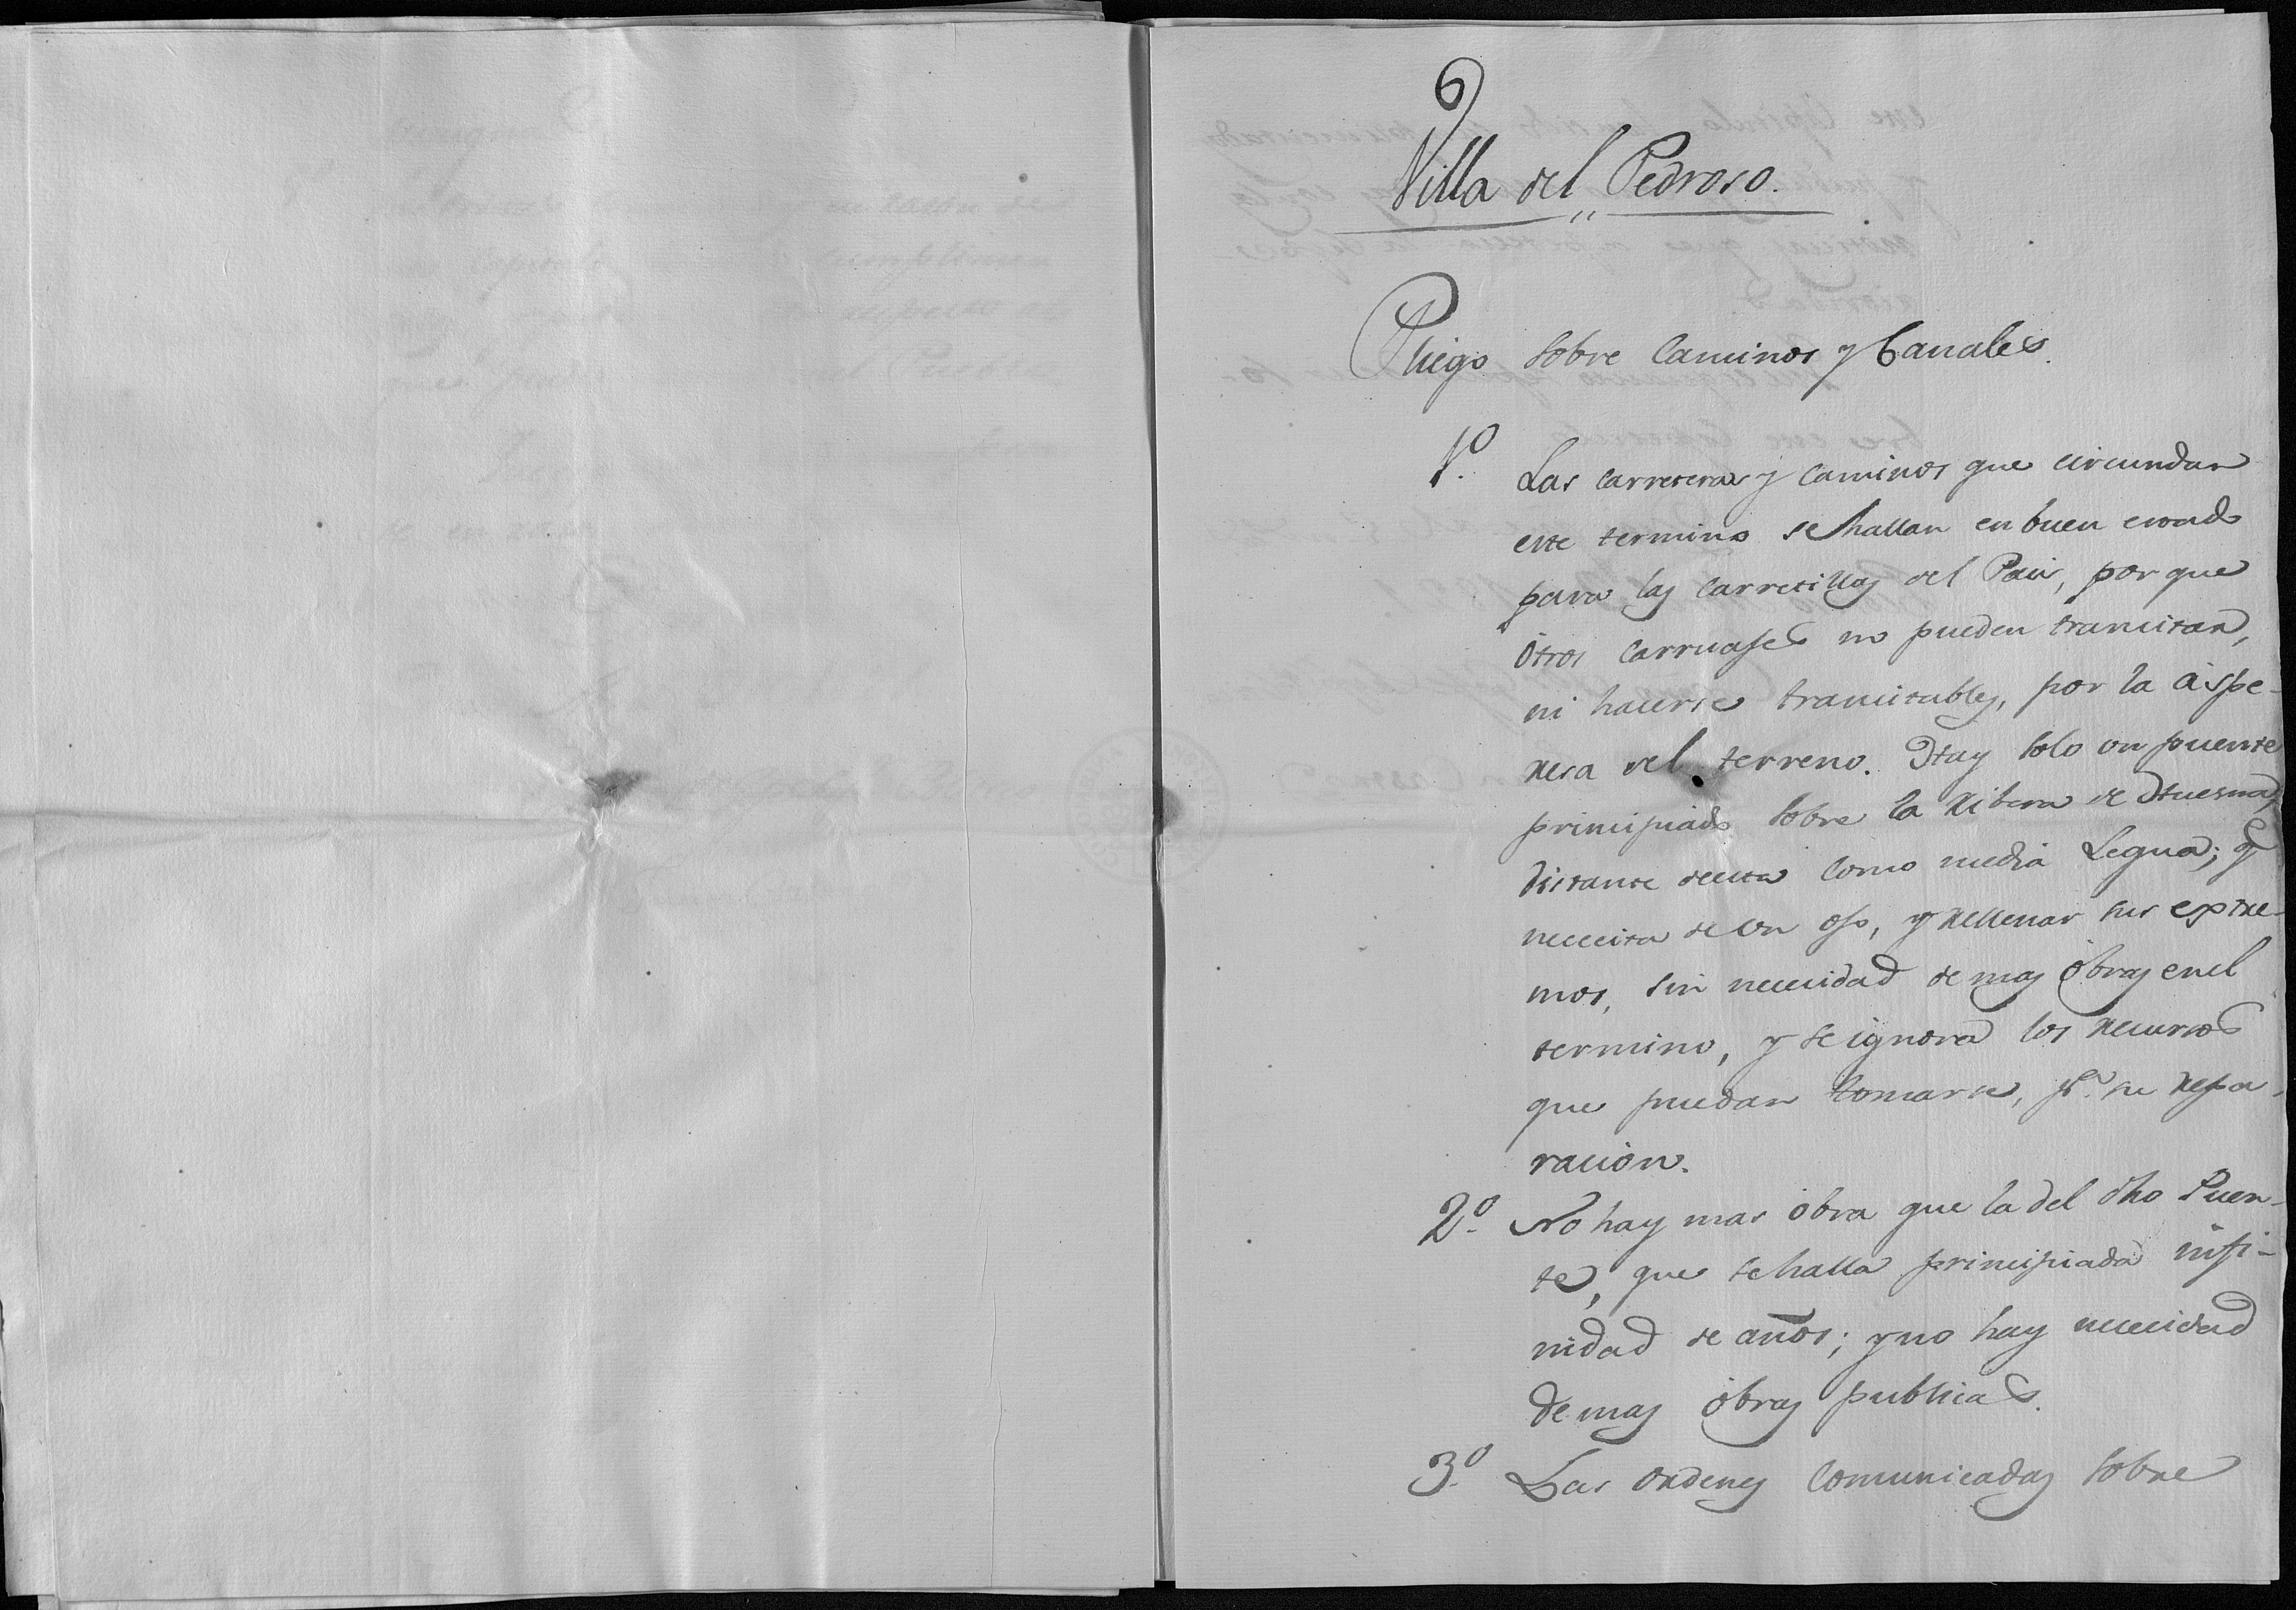 6
Villa del Pedroso.
Pliego sobre Caminos y Canales.
1º. Las carreteras y caminos que circundan
este termino se hallan en buen estado
para las carretillas del Pais, por que
otros carruajes no pueden transitar,
ni hacerse transitables, por la áspe-
resa del terreno. Hay solo un puente
principiado sobre la Ribera de Huesna,
distante deesta como media Legua; q.e
necesita de un ojo, y rellenar sus extre-
mos, sin necesidad de mas óbras enel
termino, y se ignora los recursos
que puedan tomarse, p.a su repa-
racion.
2º. No hay mas óbra que la del dho Puen-
te, que se halla principiada infi-
nidad de años; y no hay necesidad
de mas óbras publicas.
3º. Las ordenes comunicadas sobre